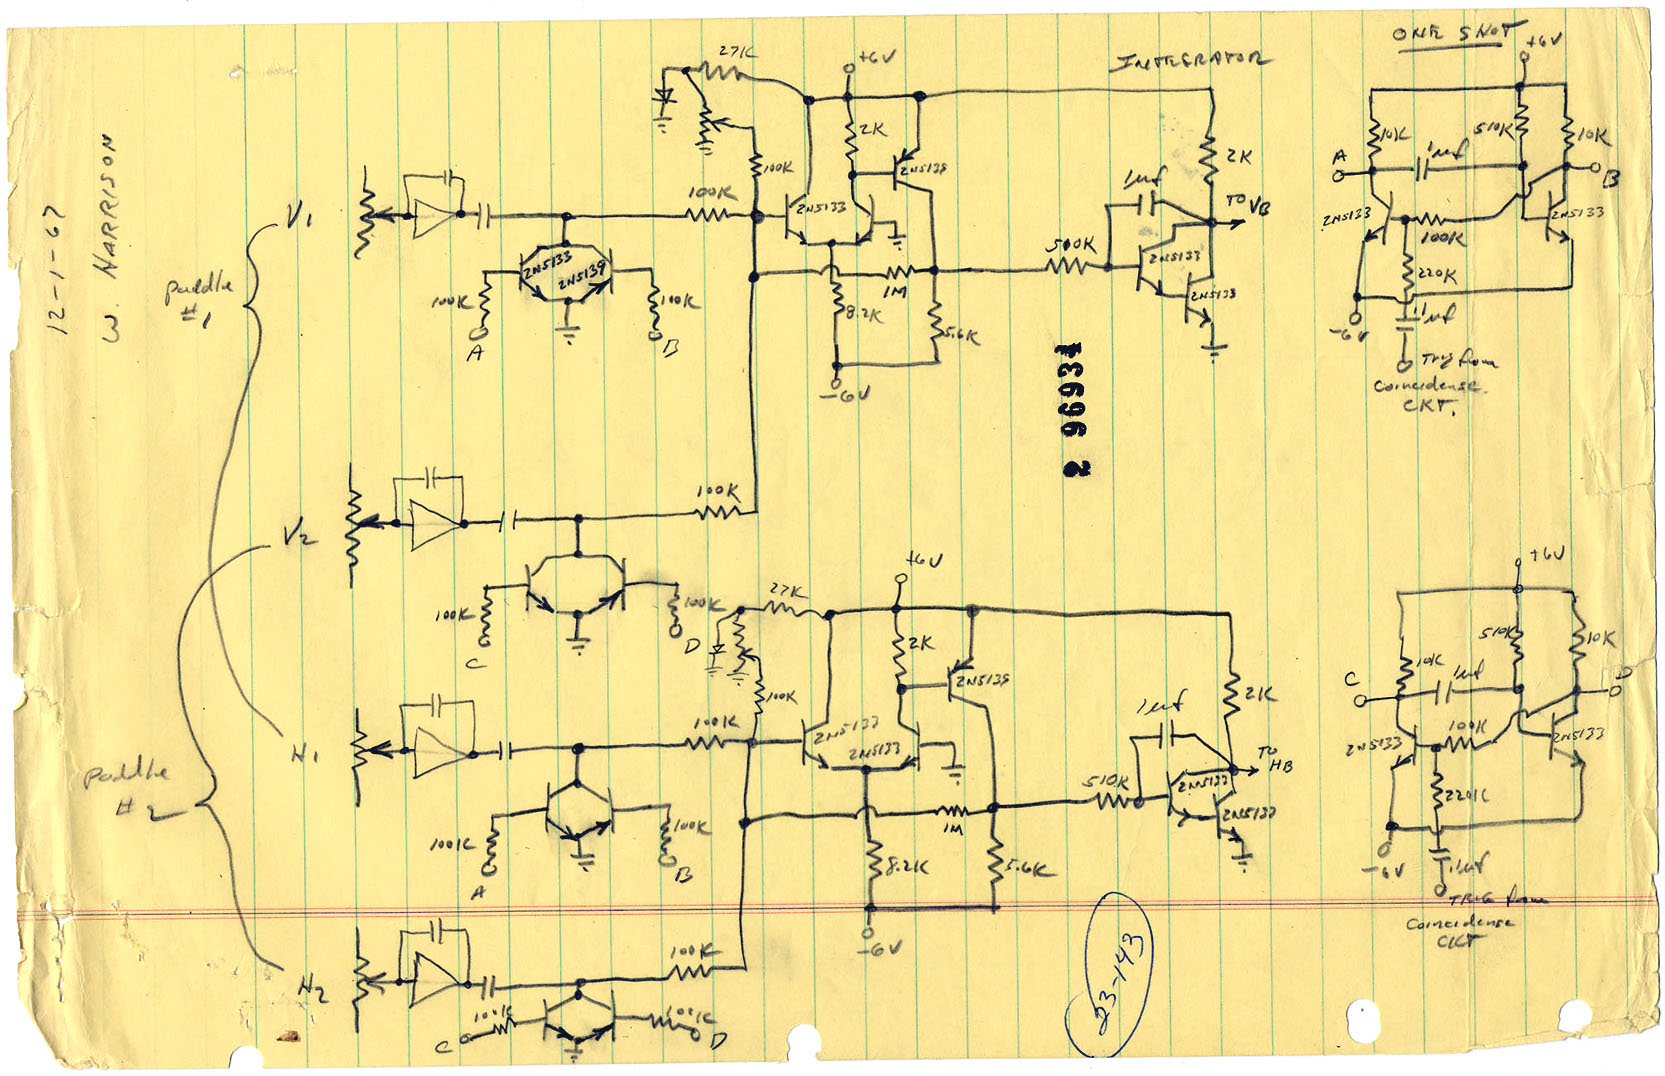 12-1-67
W. HARRISON
INTEGRATOR
ONE SHOT
27K
+6V
+6V
2K
2N5139
2K
10K
510K
10K
A
1uf
B
100K
V1
100K
2N5133
1uf
TO
VB
2N5133
2N5133
100K
220K
2N5133
2N5139
500K
1M
2N5133
2N5133
100K
100K
8.2K
5.6K
1uf
-6V
A
B
-6V
Trig from
Coincidense
CKT.
Paddle
#1
2 96934
V2
100K
100K
100K
C
D
27K
+6V
+6V
2K
2N5139
510K
10K
10K
2K
C
1uf
D
100K
H1
100K
2N5133
2N5133
1uf
TO
HB
2N5133
100K
2N5133
510K
2N5133
2N5133
220K
1M
100K
100K
8.2K
5.6K
1uf
A
B
-6V
-6V
TRIG from
Coincidense
CKT
Paddle
#2
H2
100K
100K
100K
C
D
23-143